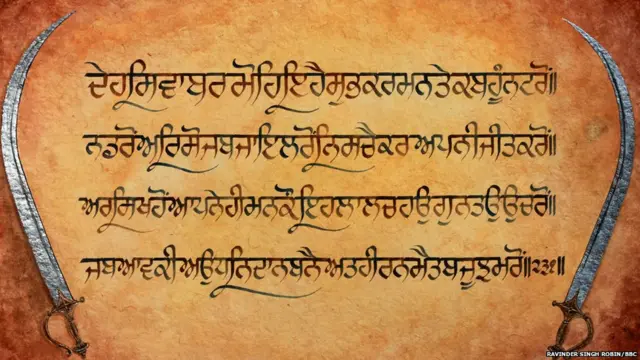 ਦੇਹਸਿਵਾਬਰਮੋਹਿਇਹੈਸੁਭਕਰਮਨਤੇਕਬਹੂੰਨਟਰੋਂ॥
ਨਡਰੋਂਅਰਿਸੋਜਬਜਾਇਲਰੋਂਨਿਸਚੈਕਰਅਪਨੀਜੀਤਕਰੋਂ॥
ਅਰੁਸਿਖਹੋਂਆਪਨੇਹੀਮਨਕੌਇਹਲਾਲਚਹਉਗੁਨਤਉਉਚਰੋਂ॥
ਜਬਆਵਕੀਅਉਧਨਿਦਾਨਬਨੈਅਤਹੀਰਨਮੈਤਬਜੂਝਮਰੋਂ॥੨੩੧॥
RAVINDER SINGH ROBIN/BBC